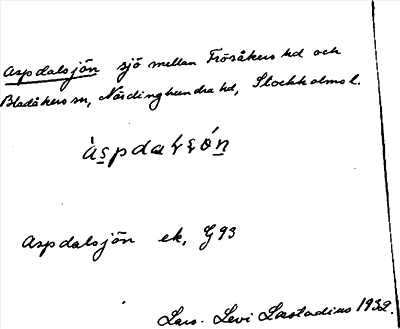 Aspdalsjön sjö mellan Frösåkers hd och
Bladåkers sn, Närdinghundra hd, Stockholms l.
Aspdalsjön ek, G 93
Lars-Levi Læstadius 1932.